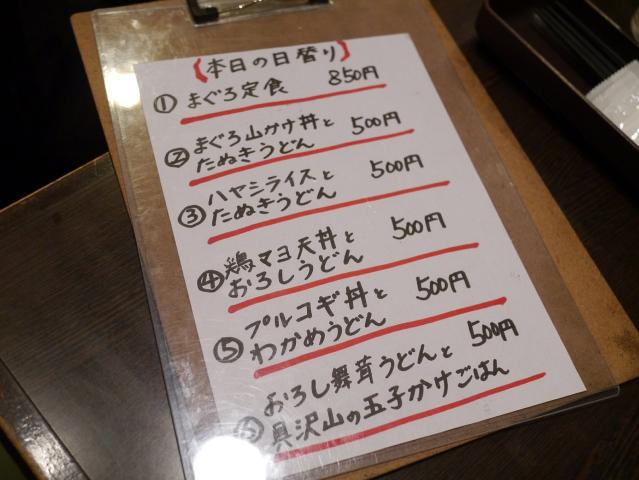 (本日の日替り)
① まぐろ定食 850円
② まぐろ山かけ丼と 500円
たぬきうどん
③ ハヤシライスと 500円
たぬきうどん
④ 鶏マヨ天丼と 500円
おろしうどん
⑤ プルコギ丼と 500円
わかめうどん
⑥ おろし舞茸うどんと 500円
具沢山の玉子かけごはん